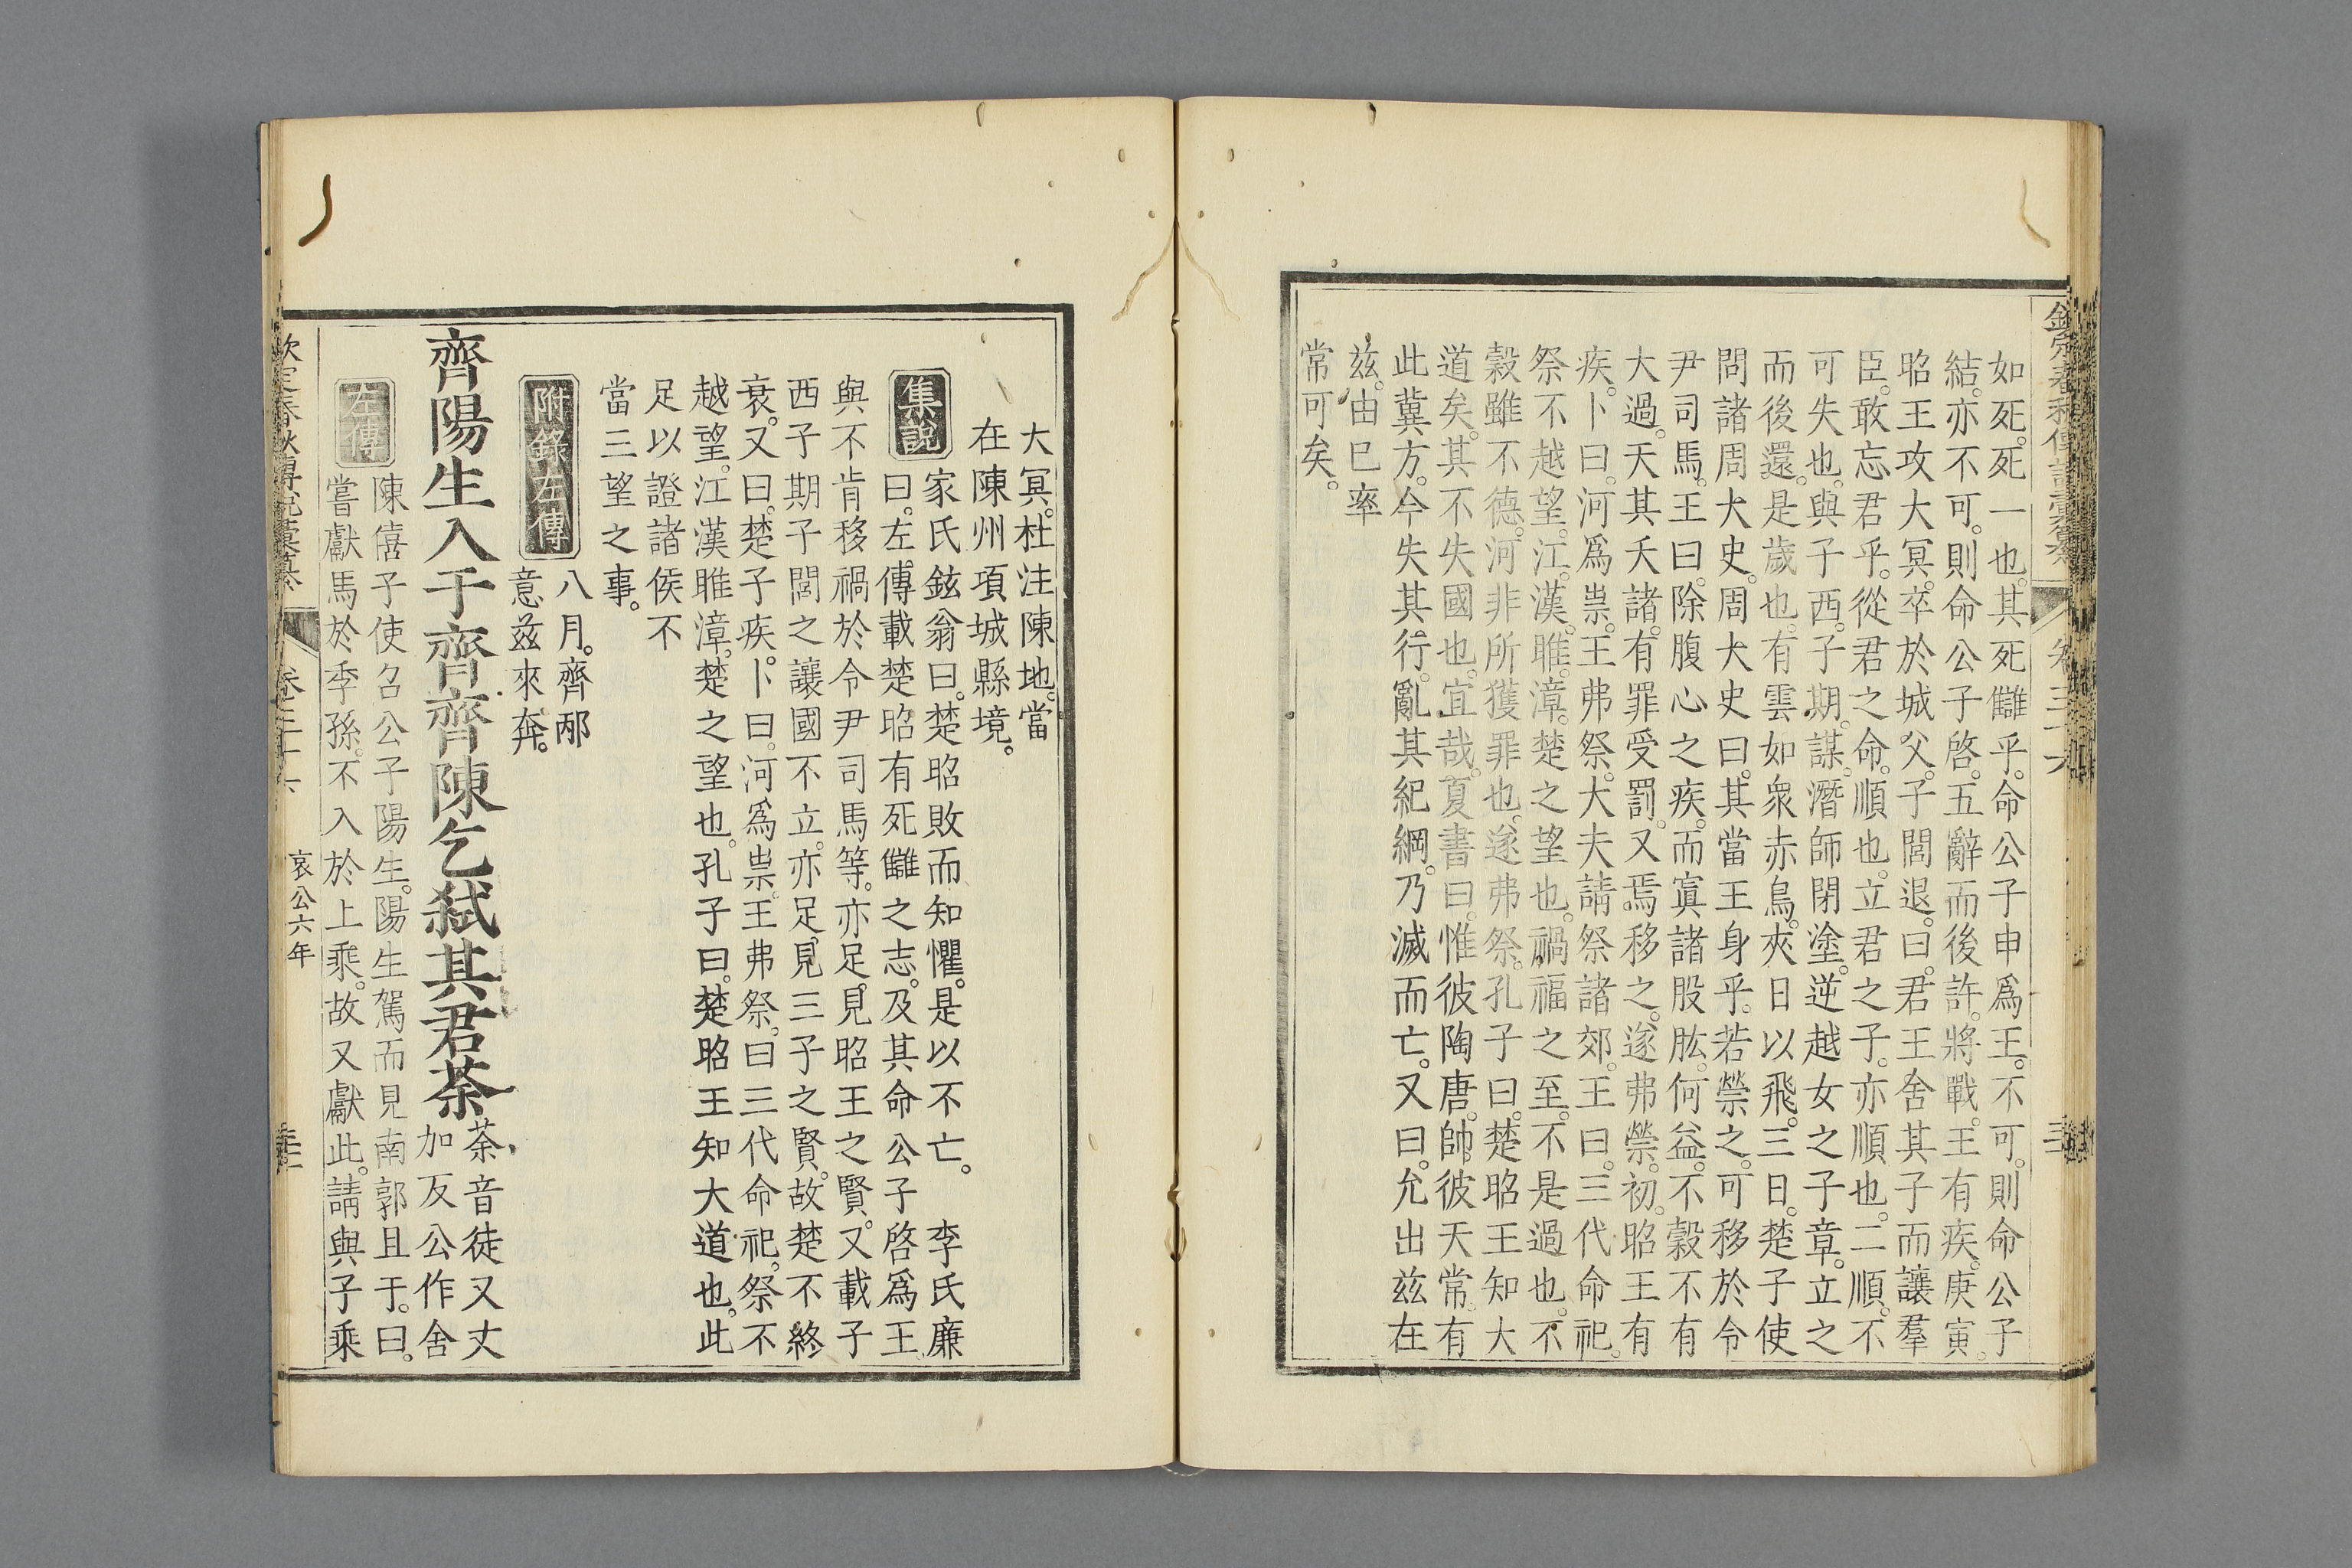 欽定春秋傳說彙纂 卷三十六
如死。死一也。其死讎乎。命公子申爲王。不可。則命公子
結。亦不可。則命公子啓。五辭而後許。將戰。王有疾。庚寅。
昭王攻大冥。卒於城父。子閭退。曰。君王舍其子而讓羣
臣。敢忘君乎。從君之命。順也。立君之子。亦順也。二順。不
可失也。與子西。子期。謀。潛師閉塗。逆越女之子章。立之
而後還。是歲也。有雲如衆赤鳥。夾日以飛。三日。楚子使
問諸周大史。周大史曰。其當王身乎。若禜之。可移於令
尹司馬。王曰。除腹心之疾。而寘諸股肱。何益。不穀不有
大過。天其夭諸。有罪受罰。又焉移之。遂弗禜。初。昭王有
疾。卜曰。河爲祟。王弗祭。大夫請祭諸郊。王曰。三代命祀。
祭不越望。江。漢。睢。漳。楚之望也。禍福之至。不是過也。不
穀雖不德。河非所獲罪也。遂弗祭。孔子曰。楚昭王知大
道矣。其不失國也。宜哉。夏書曰。惟彼陶唐。帥彼天常。有
此冀方。今失其行。亂其紀綱。乃滅而亡。又曰。允出兹在
兹。由巳率
常可矣。
大冥。杜注陳地。當
在陳州項城縣境。
集說
家氏鉉翁曰。楚昭敗而知懼。是以不亡。 李氏廉
曰。左傳載楚昭有死讎之志。及其命公子啓爲王。
與不肯移禍於令尹司馬等。亦足見昭王之賢。又載子
西子期子閭之讓國不立。亦足見三子之賢。故楚不終
衰。又曰。楚子疾。卜曰。河爲祟。王弗祭。曰三代命祀。祭不
越望。江漢睢漳。楚之望也。孔子曰。楚昭王知大道也。此
足以證諸侯不
當三望之事。
附錄左傳
八月。齊邴
意兹來奔。
齊陽生入于齊齊陳乞弑其君荼
荼音徒又丈
加反公作舍
左傳
陳僖子使召公子陽生。陽生駕而見南郭且于。曰。
嘗獻馬於季孫。不入於上乘。故又獻此。請與子乘
欽定春秋傳說彙纂 卷三十六 哀公六年